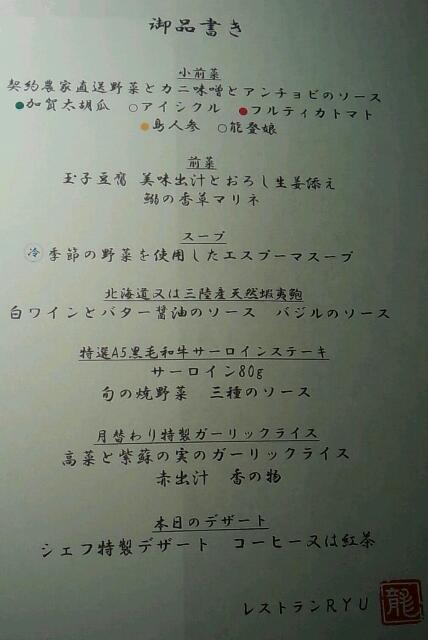 御品書き
小前菜
契約農家直送野菜とカニ味噌とアンチョビのソース
●加賀太胡瓜 ○アイシクル ●フルティカトマト
●島人参 ○能登娘
前菜
玉子豆腐 美味出汁とおろし生姜添え
鰯の香草マリネ
スープ
冷 季節の野菜を使用したエスプーマスープ
北海道又は三陸産天然蝦夷鮑
白ワインとバター醤油のソース バジルのソース
特選A5黒毛和牛サーロインステーキ
サーロイン80g
旬の焼野菜 三種のソース
月替わり特製ガーリックライス
高菜と紫蘇の実のガーリックライス
赤出汁 香の物
本日のデザート
シェフ特製デザート コーヒー又は紅茶
レストランRYU 龍